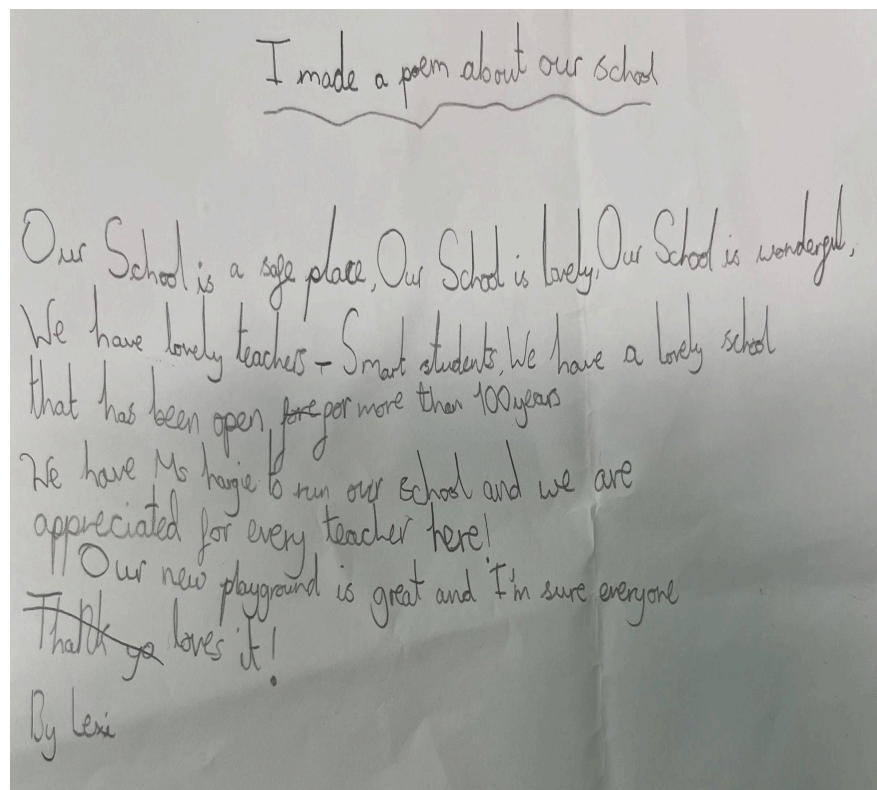 I made a poem about our school
Our School is a safe place, Our School is lovely, Our School is wonderful,
We have lovely teachers - Smart students, We have a lovely school
that has been open fore for more than 100 years
We have Ms hargie to run our school and we are
appreciated for every teacher here!
Our new playground is great and I'm sure everyone
Thank yo loves it!
By Lexi